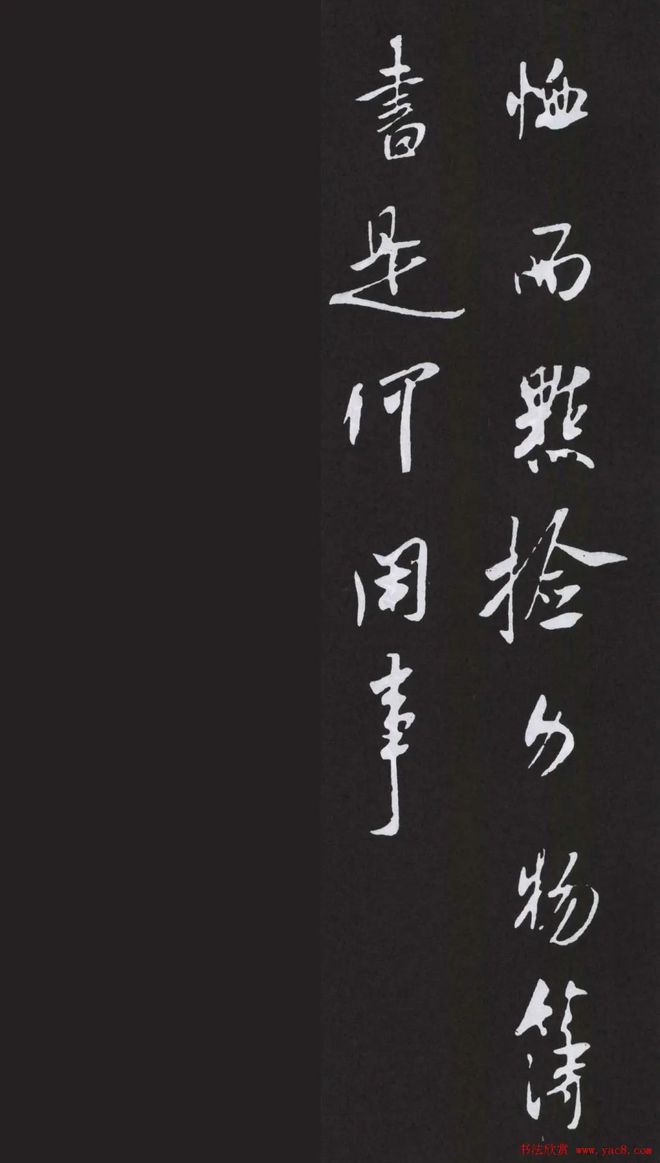 恤而點撿勿物簿
書是何閑事
书法欣赏 www.yac8.com